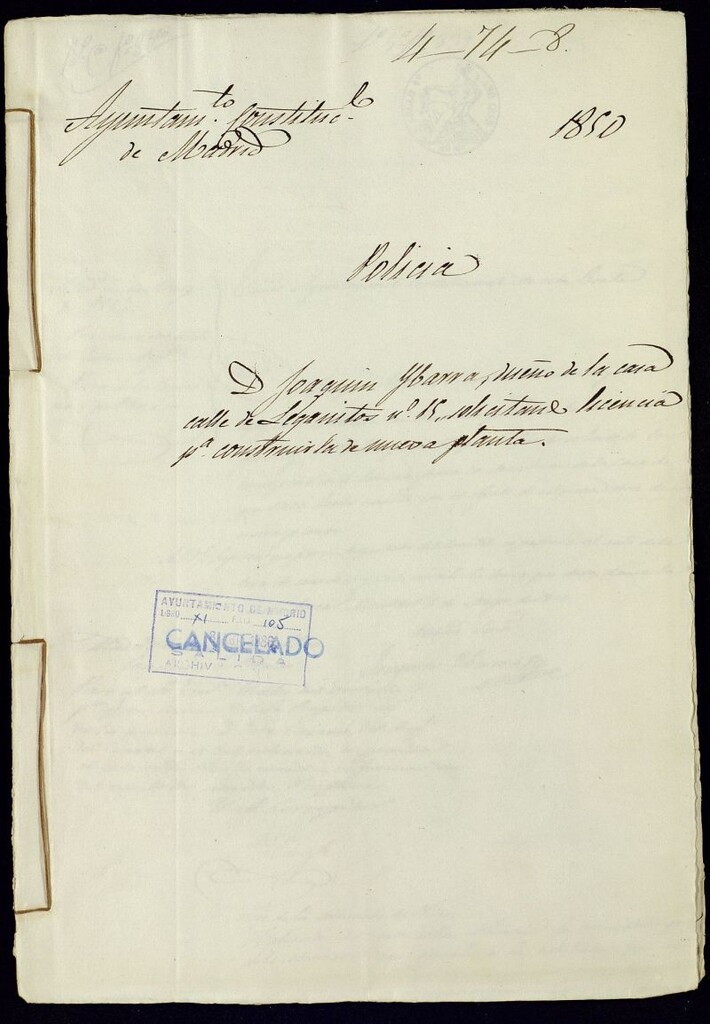 4-74-8.
Ayuntam.to Constituc.l
de Madrid
1850
Policia
D Joaquin Ybarra, dueño de la casa
calle de Leganitos nº. 15, solicitando licencia
pª. construirla de nueva planta.
AYUNTAMIENTO DE MADRID
LIBRO XI FOLIO 105
CANCELADO
SALIDA
ARCHIV